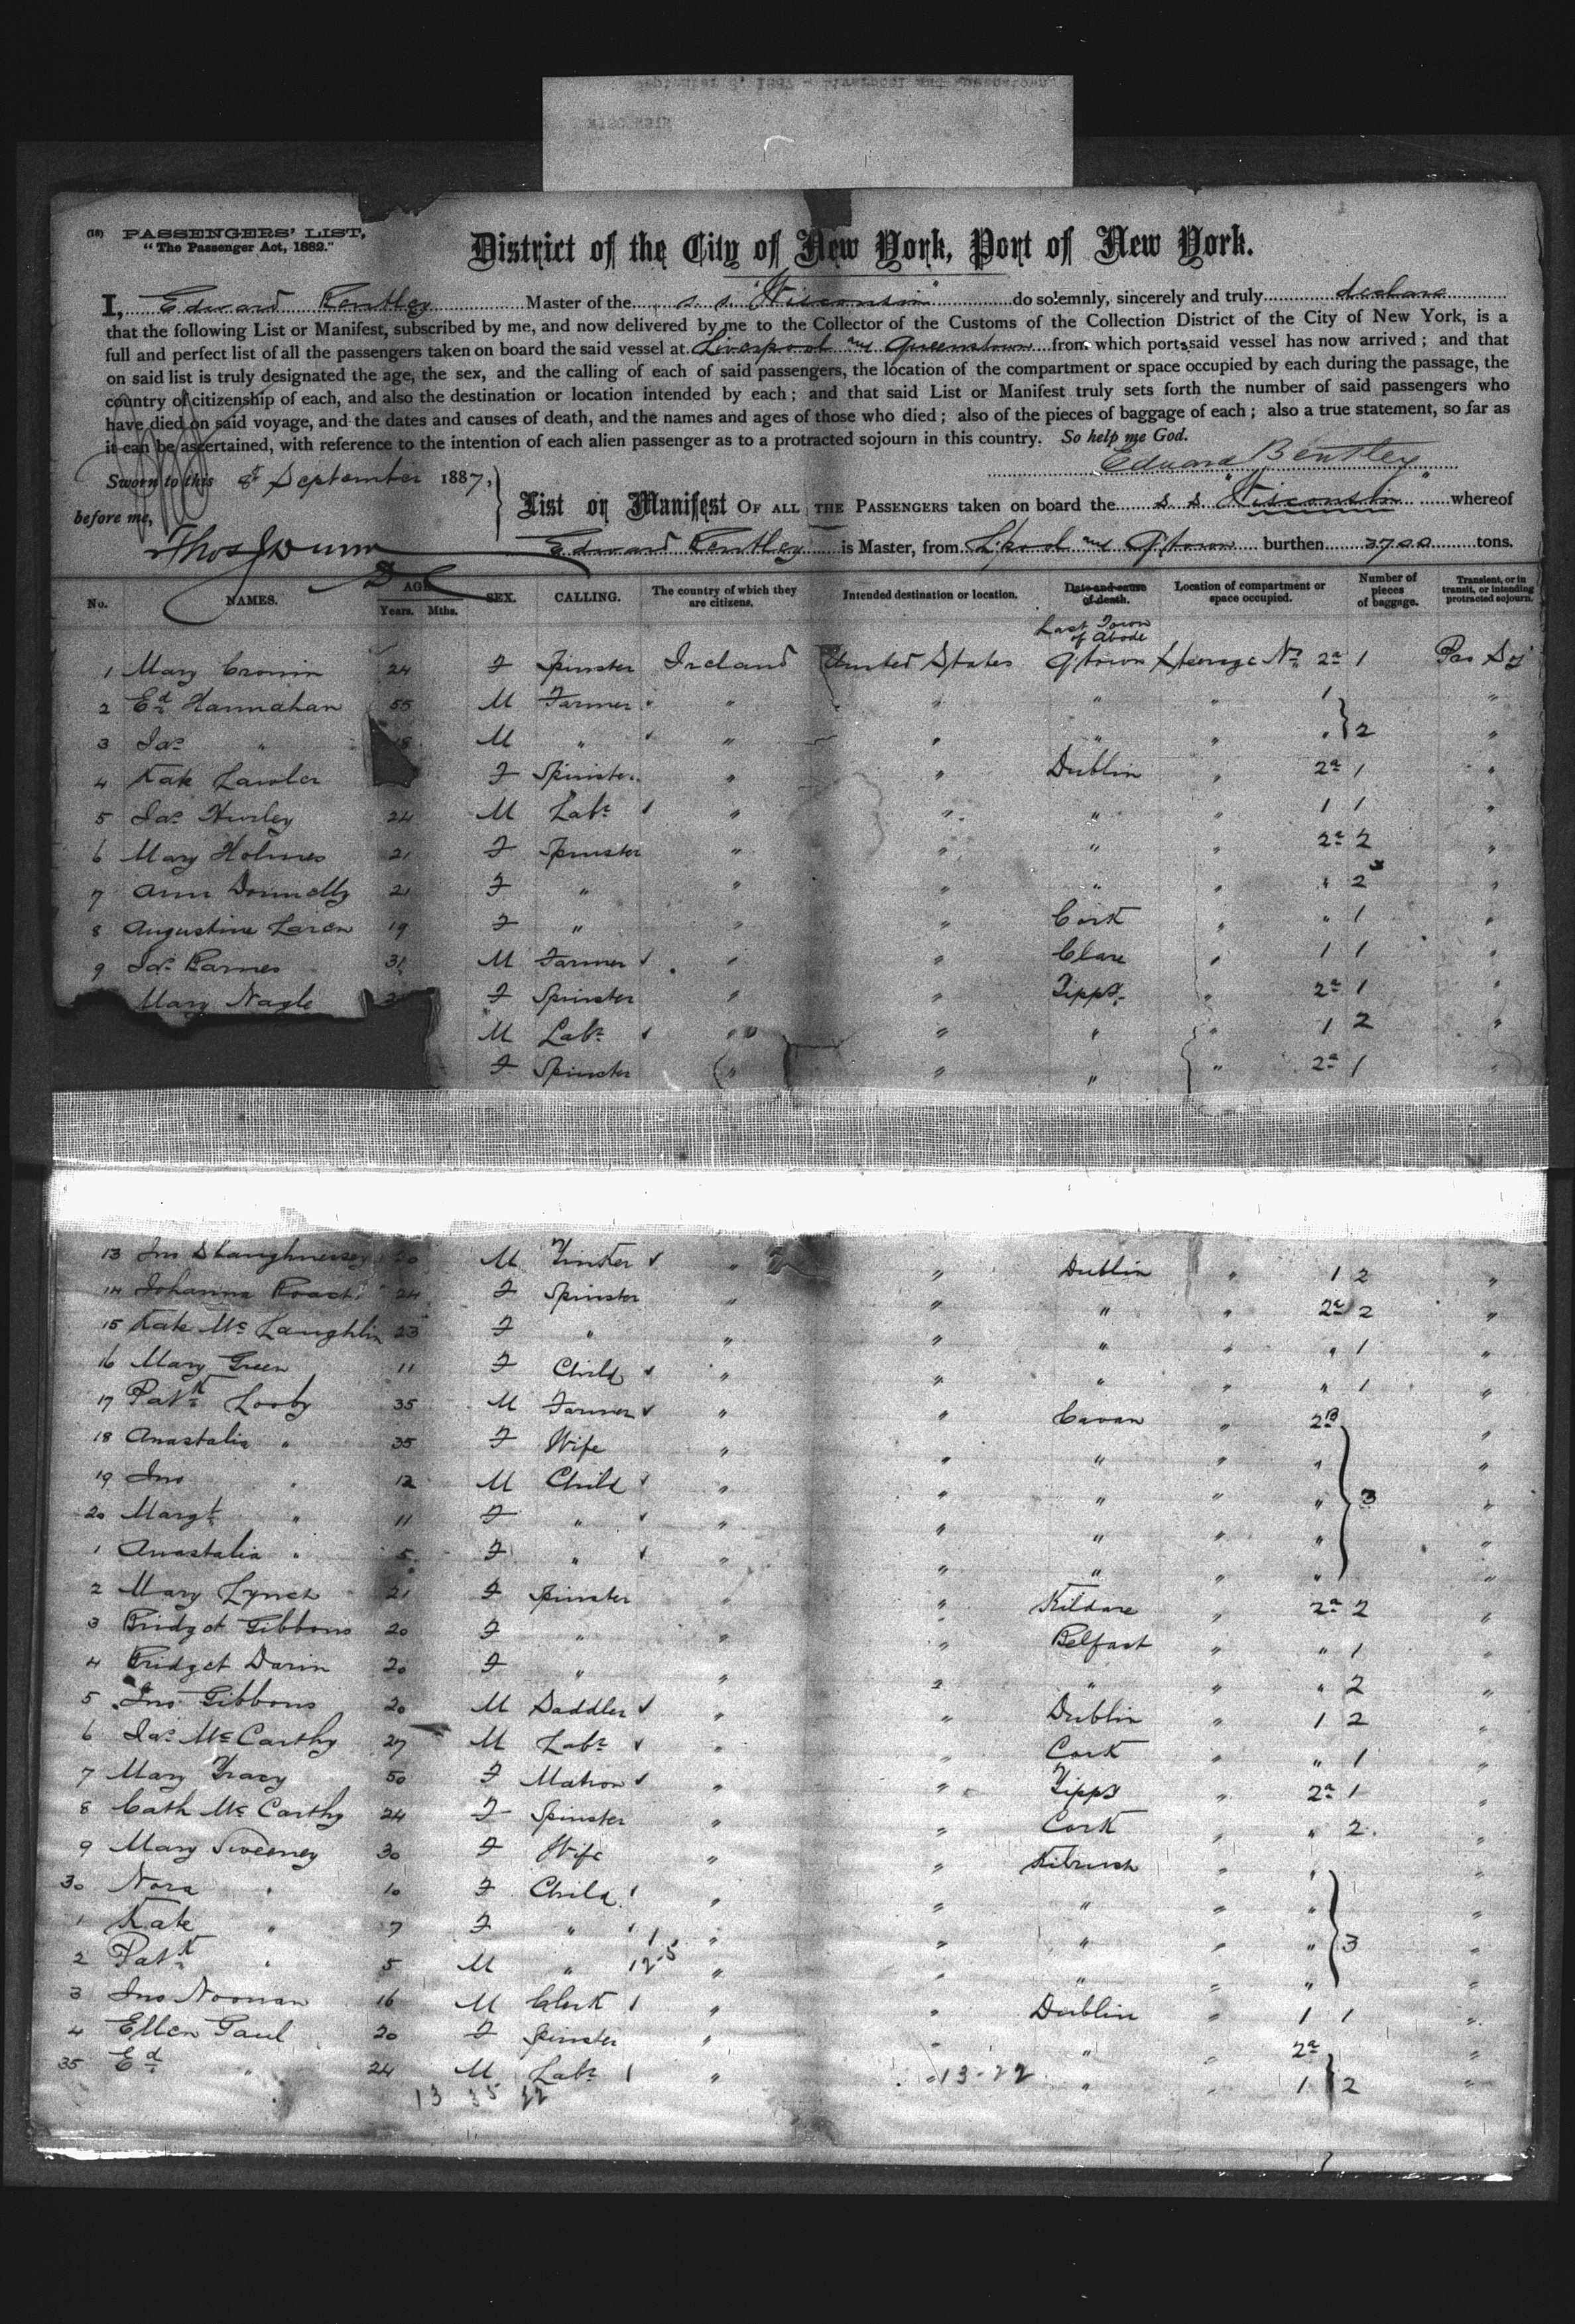 (18) PASSENGERS' LIST,
"The Passenger Act, 1882."
District of the City of New York, Port of New York.
I, Edward Bentley Master of the s. s. "Wisconsin" do solemnly, sincerely and truly declare
that the following List or Manifest, subscribed by me, and now delivered by me to the Collector of the Customs of the Collection District of the City of New York, is a
full and perfect list of all the passengers taken on board the said vessel at Liverpool and Queenstown from which ports said vessel has now arrived; and that
on said list is truly designated the age, the sex, and the calling of each of said passengers, the location of the compartment or space occupied by each during the passage, the
country of citizenship of each, and also the destination or location intended by each; and that said List or Manifest truly sets forth the number of said passengers who
have died on said voyage, and the dates and causes of death, and the names and ages of those who died; also of the pieces of baggage of each; also a true statement, so far as
it can be ascertained, with reference to the intention of each alien passenger as to a protracted sojourn in this country. So help me God.
Edward Bentley
Sworn to this 8th September 1887,
before me,
Thos J Dunn
List or Manifest OF ALL THE PASSENGERS taken on board the s. s. "Wisconsin" whereof
Edward Bentley is Master, from L'pool and Q'town burthen 3700 tons.
No. NAMES. AGE Years. Mths. SEX. CALLING. The country of which they are citizens. Intended destination or location. Date and cause of death. Location of compartment or space occupied. Number of pieces of baggage. Transient, or in transit, or intending protracted sojourn.
Last Town of Abode
1 Mary Cronin 24 F Spinster Ireland United States Q'town Steerage No 2a 1 Pro Soj
2 Ed Hannahan 55 M Farmer " " " " 1 "
3 Jas " 18 M " " " " " " 2 "
4 Kate Lawler F Spinster " " Dublin " 2a 1 "
5 Jas Hurley 24 M Labr " " " " 1 1 "
6 Mary Holmes 21 F Spinster " " " " 2a 2 "
7 Ann Donnelly 21 F " " " " " " 2 "
8 Augustine Laren 19 F " " " Cork " " 1 "
9 Jas Barnes 31 M Farmer " " Clare " 1 1 "
Mary Nagle F Spinster " " Tippy " 2a 1 "
M Labr " " " " 1 2 "
F Spinster " " " " 2a 1 "
13 Jno Shaughnessy 20 M Tinker " " Dublin " 1 2 "
14 Johanna Roach 24 F Spinster " " " " 2a 2 "
15 Kate McLaughlin 23 F " " " " " " 1 "
16 Mary Green 11 F Child " " " " " 1 "
17 Patk Looby 35 M Farmer " " Cavan " 2B "
18 Anastalia " 35 F Wife " " " " " "
19 Jno " 12 M Child " " " " " 3 "
20 Margt " 11 F " " " " " " "
1 Anastalia " 5 F " " " " " " "
2 Mary Lynch 21 F Spinster " " Kildare " 2a 2 "
3 Bridget Gibbons 20 F " " " Belfast " " 1 "
4 Bridget Darin 20 F " " " " " " 2 "
5 Jno Gibbons 20 M Saddler " " Dublin " 1 2 "
6 Jas McCarthy 27 M Labr " " Cork " " 1 "
7 Mary Tracy 50 F Matron " " Tippy " 2a 1 "
8 Cath McCarthy 24 F Spinster " " Cork " " 2 "
9 Mary Sweeney 30 F Wife " " Kilrush " " "
30 Nora " 10 F Child " " " " " "
1 Kate " 7 F " " " " " " 3 "
2 Patk " 5 M " 12-5 " " " " " "
3 Jno Noonan 16 M Clerk " " Dublin " 1 1 "
4 Ellen Gaul 20 F Spinster " " " " 2a "
35 Ed " 24 M Labr " " 13-22 " " 1 2 "
13 35 22